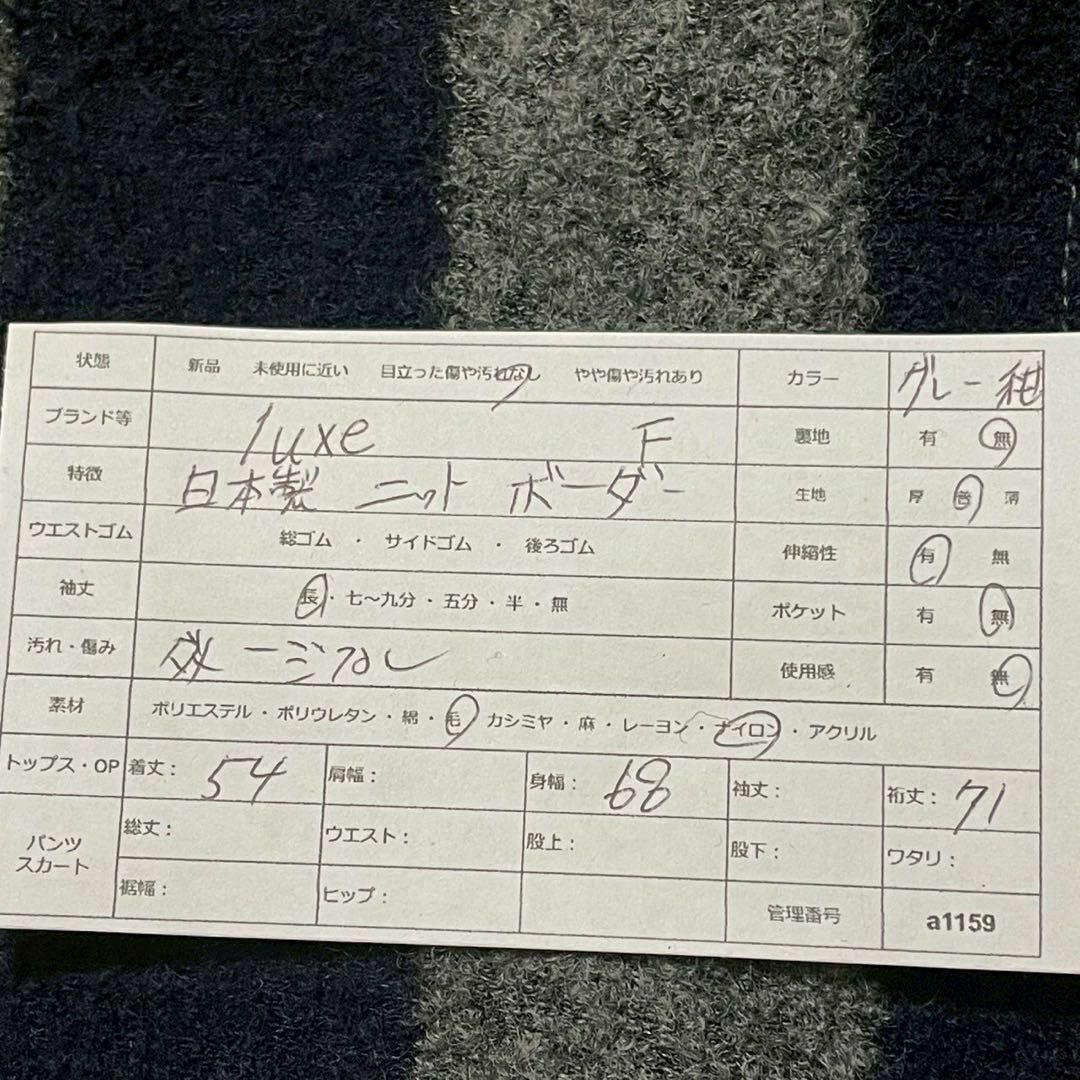 状態 新品 未使用に近い 目立った傷や汚れなし やや傷や汚れあり カラー グレー 紺
ブランド等 luxe F 裏地 有 無
特徴 日本製 ニット ボーダー 生地 厚 普 薄
ウエストゴム 総ゴム ・ サイドゴム ・ 後ろゴム 伸縮性 有 無
袖丈 長・七〜九分・五分・半・無 ポケット 有 無
汚れ・傷み ダメージなし 使用感 有 無
素材 ポリエステル・ポリウレタン・綿・毛 カシミヤ・麻・レーヨン・ナイロン・アクリル
トップス・OP 着丈： 54 肩幅： 身幅： 68 袖丈： 裄丈： 71
パンツ スカート 総丈： ウエスト： 股上： 股下： ワタリ：
裾幅： ヒップ： 管理番号 a1159